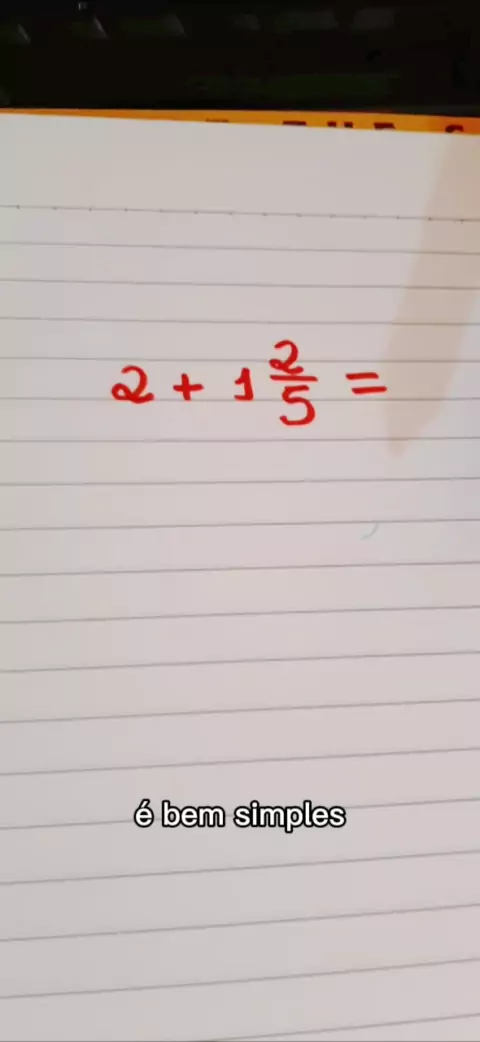 2 + 1 2/5 =
é bem simples